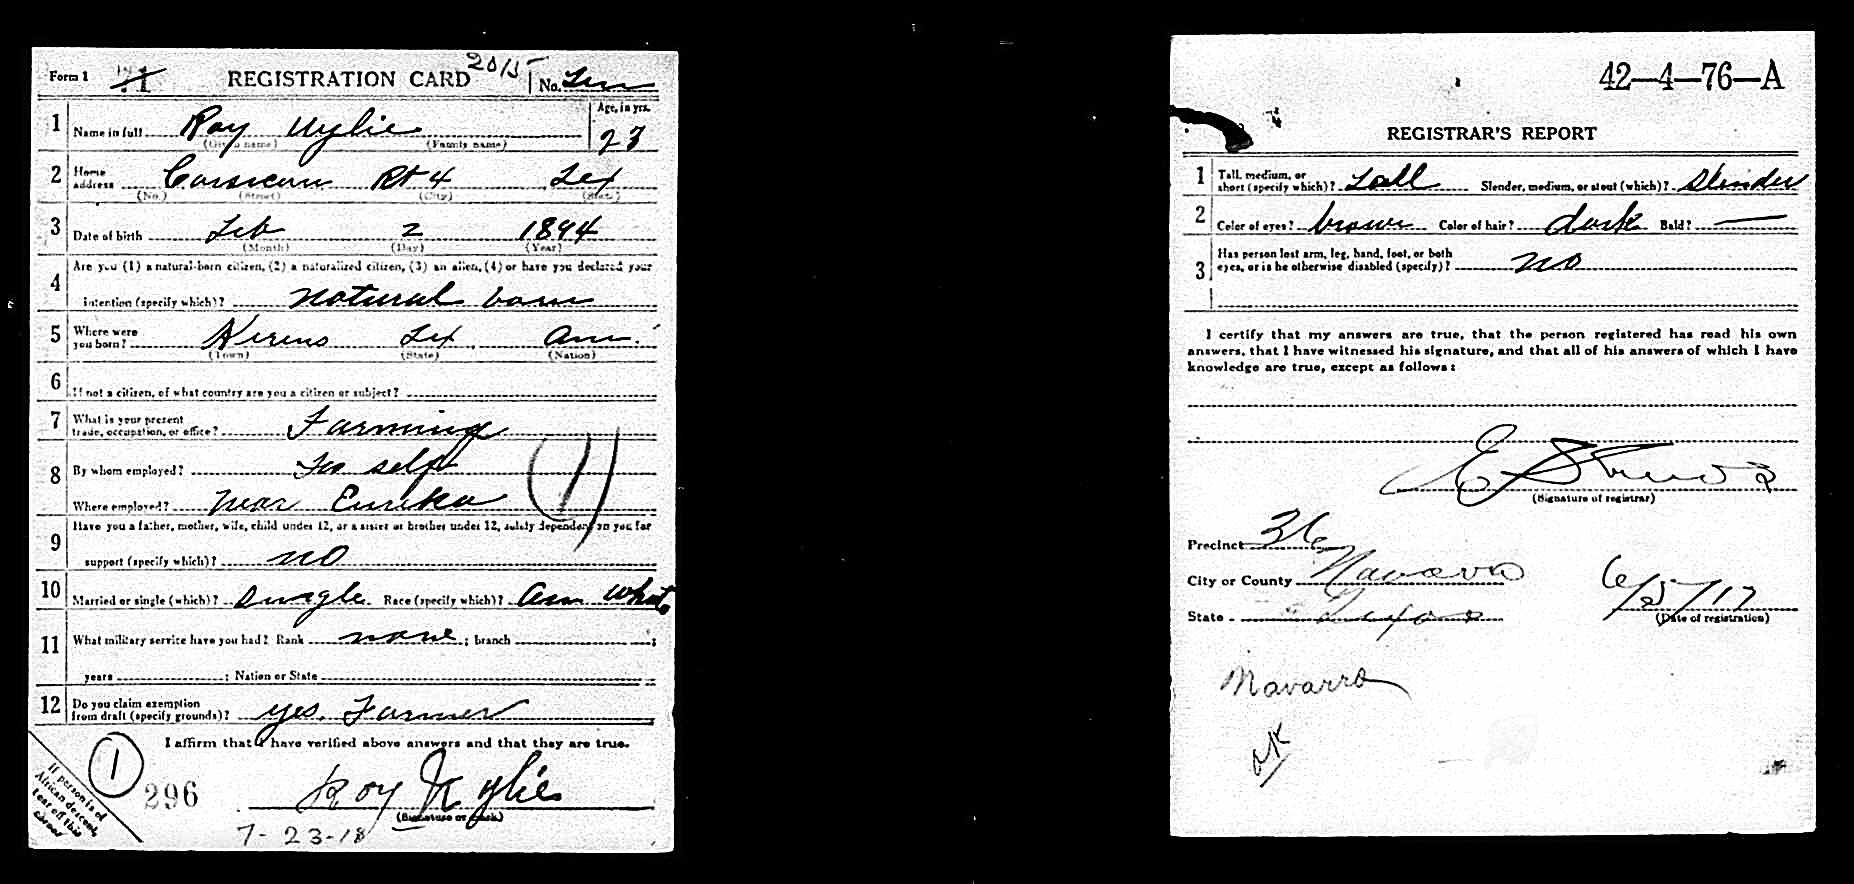 Form 1 REGISTRATION CARD 2015 No.
1 Name in full Roy Wylie Age, in yrs. 23
(Given name) (Family name)
2 Home address Corsicana Rt 4 Tex
(No.) (Street) (City) (State)
3 Date of birth Feb 2 1894
(Month) (Day) (Year)
4 Are you (1) a natural-born citizen, (2) a naturalized citizen, (3) an alien, (4) or have you declared your
intention (specify which)? natural born
5 Where were you born? Kerens Tex Am.
(Town) (State) (Nation)
6 If not a citizen, of what country are you a citizen or subject?
7 What is your present trade, occupation, or office? Farming
8 By whom employed? For self
Where employed? near Eureka
9 Have you a father, mother, wife, child under 12, or a sister or brother under 12, solely dependent on you for
support (specify which)? no
10 Married or single (which)? Single Race (specify which)? Am White
11 What military service have you had? Rank none ; branch ;
years ; Nation or State
12 Do you claim exemption from draft (specify grounds)? yes. Farmer
I affirm that I have verified above answers and that they are true.
1
296
Roy Wylie
(Signature or mark)
7-23-18
If person is of
African descent,
tear off this
corner
42—4—76—A
REGISTRAR'S REPORT
1 Tall, medium, or short (specify which)? Tall Slender, medium, or stout (which)? Slender
2 Color of eyes? brown Color of hair? dark Bald? —
3 Has person lost arm, leg, hand, foot, or both
eyes, or is he otherwise disabled (specify)? no
I certify that my answers are true, that the person registered has read his own
answers, that I have witnessed his signature, and that all of his answers of which I have
knowledge are true, except as follows:
(Signature of registrar)
Precinct 36
City or County Navarro
State Texas
6/5/17
(Date of registration)
Navarro
OK